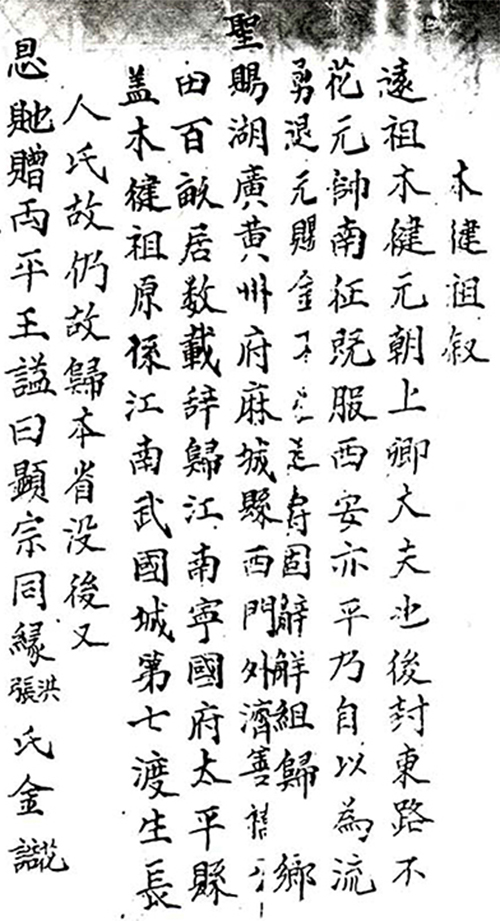 木健祖叙
遠祖木徤元朝上卿大夫也後封東路不
花元帥南征既服西安亦平乃自以為流
勇退元賜金壽固辭解組歸鄉
聖賜湖廣黄州府麻城縣西門外濟善
田百畝居数載辞歸江南寧國府太平縣
盖木徤祖原係江南武國城第七渡生長
人氏故仍故歸本省没後又
恩貤贈両平王謚曰顯宗同緣洪張氏金花誥